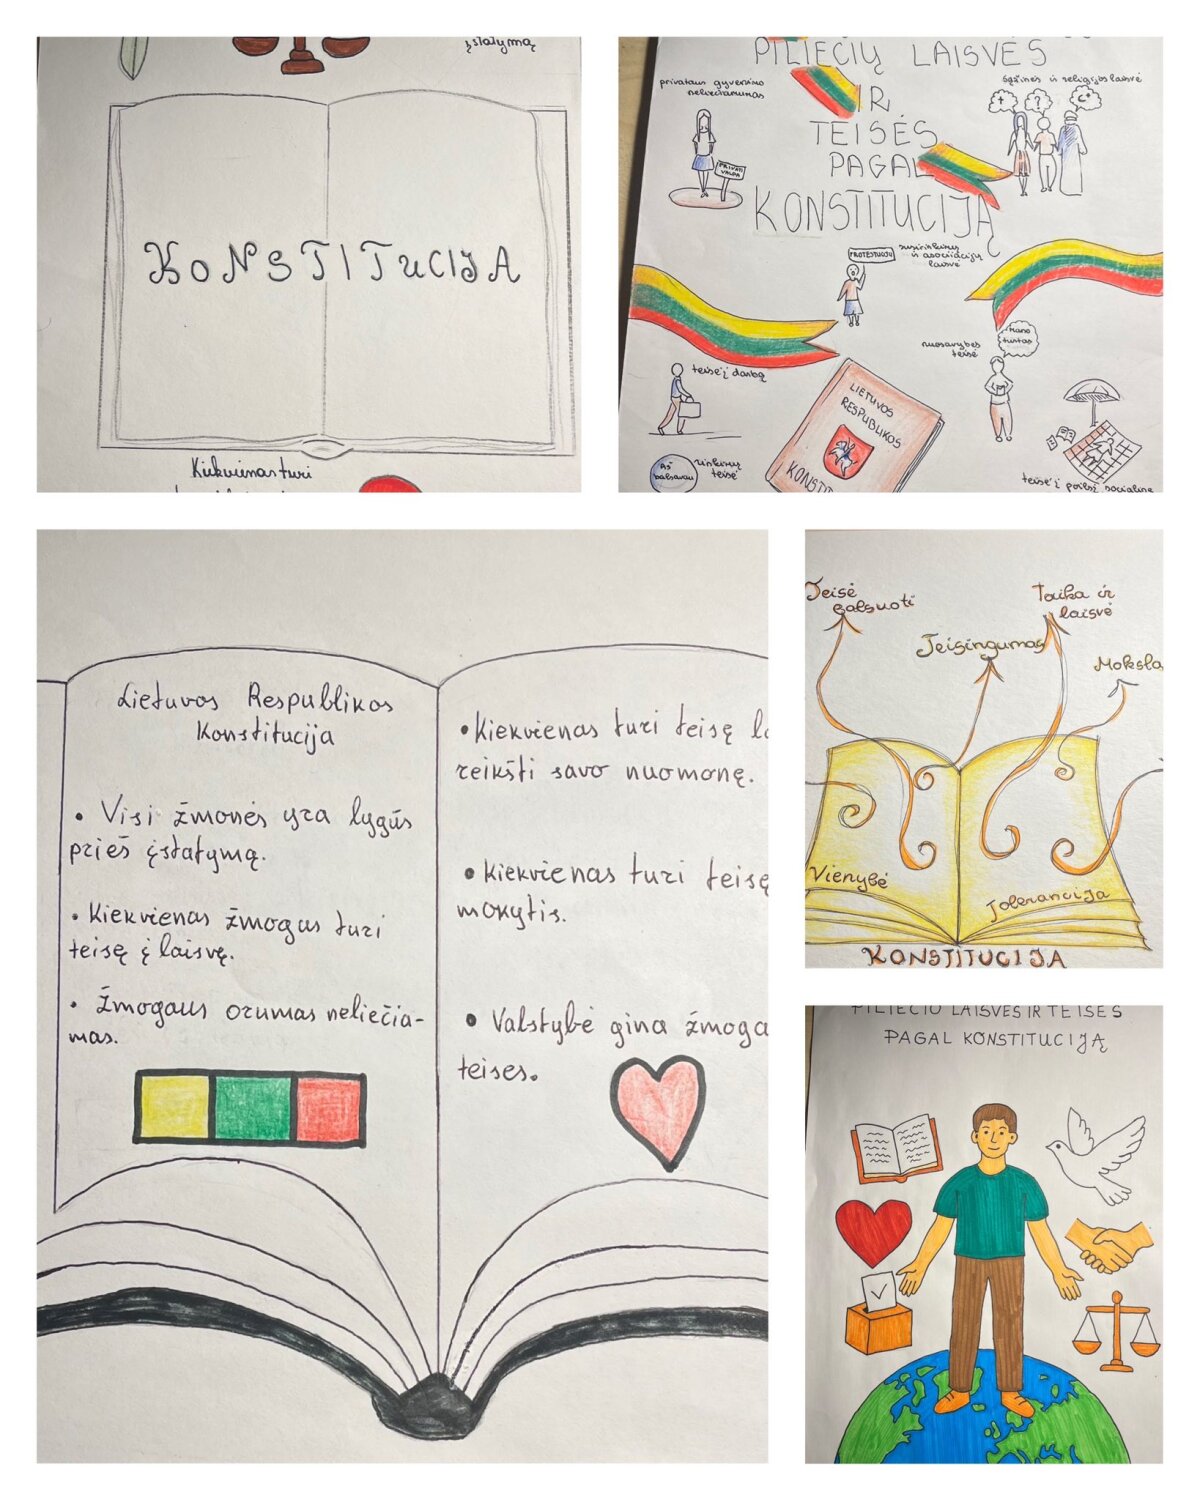 įstatymą
KONSTITUCIJA
Kiekvienas turi
PILIEČIŲ LAISVĖS
IR
TEISĖS
PAGAL
KONSTITUCIJĄ
privataus gyvenimo
neliečiamumas
PRIVATI
VALDA
sąžinės ir religijos laisvė
PROTESTUOJU
susirinkimų
ir asociacijų
laisvė
nuosavybės
teisė
mano
turtas
teisė į darbą
Aš
balsavau
rinkimų
teisė
LIETUVOS
RESPUBLIKOS
KONSTIT
teisė į poilsį socialinę
Lietuvos Respublikos
Konstitucija
• Visi žmonės yra lygūs
prieš įstatymą.
• Kiekvienas žmogus turi
teisę į laisvę.
• Žmogaus orumas neliečia-
mas.
• Kiekvienas turi teisę la
reikšti savo nuomonę.
• Kiekvienas turi teisę
mokytis.
• Valstybė gina žmoga
teises.
Teisė
balsuoti
Teisingumas
Taika ir
laisvė
Mokslo
Vienybė
Tolerancija
KONSTITUCIJA
PILIEČIO LAISVĖS IR TEISĖS
PAGAL KONSTITUCIJĄ